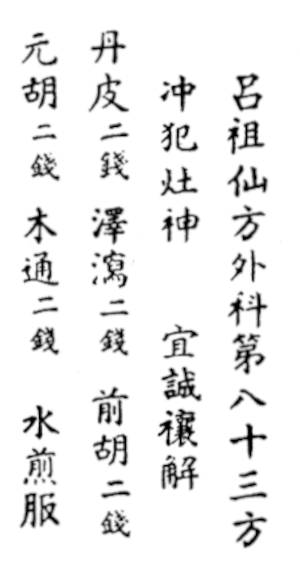 呂祖仙方外科第八十三方
冲犯灶神 宜誠禳解
丹皮二錢 澤瀉二錢 前胡二錢
元胡二錢 木通二錢 水煎服